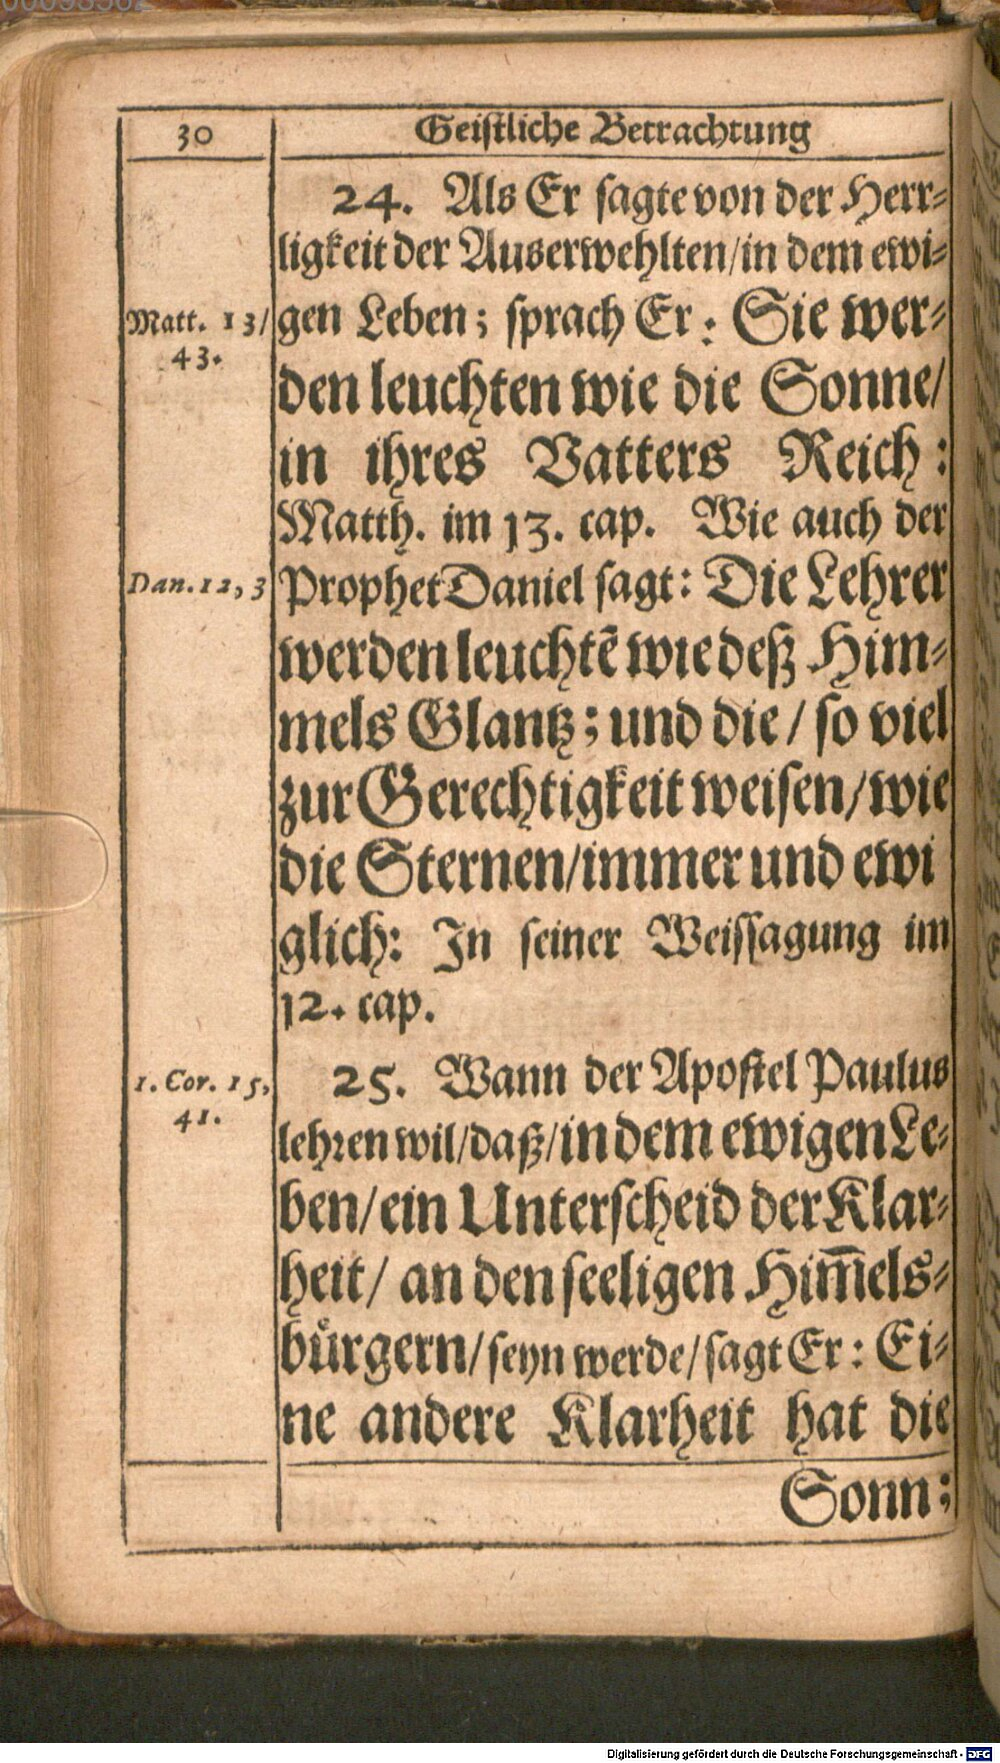 30
Geistliche Betrachtung
24. Als Er sagte von der Herr-
ligkeit der Auserwehlten/in dem ewi-
Matt. 13/
43.
gen Leben; sprach Er: Sie wer-
den leuchten wie die Sonne/
in ihres Vatters Reich:
Matth. im 13. cap. Wie auch der
Dan. 12, 3
Prophet Daniel sagt: Die Lehrer
werden leuchtē wie deß Him-
mels Glantz; und die/ so viel
zur Gerechtigkeit weisen/wie
die Sternen/immer und ewi
glich: In seiner Weissagung im
12. cap.
1. Cor. 15,
41.
25. Wann der Apostel Paulus
lehren wil/daß/in dem ewigen Le-
ben/ein Unterscheid der Klar-
heit/ an den seeligen Him̅els-
bürgern/seyn werde/sagt Er: Ei-
ne andere Klarheit hat die
Sonn;
Digitalisierung gefördert durch die Deutsche Forschungsgemeinschaft - DFG